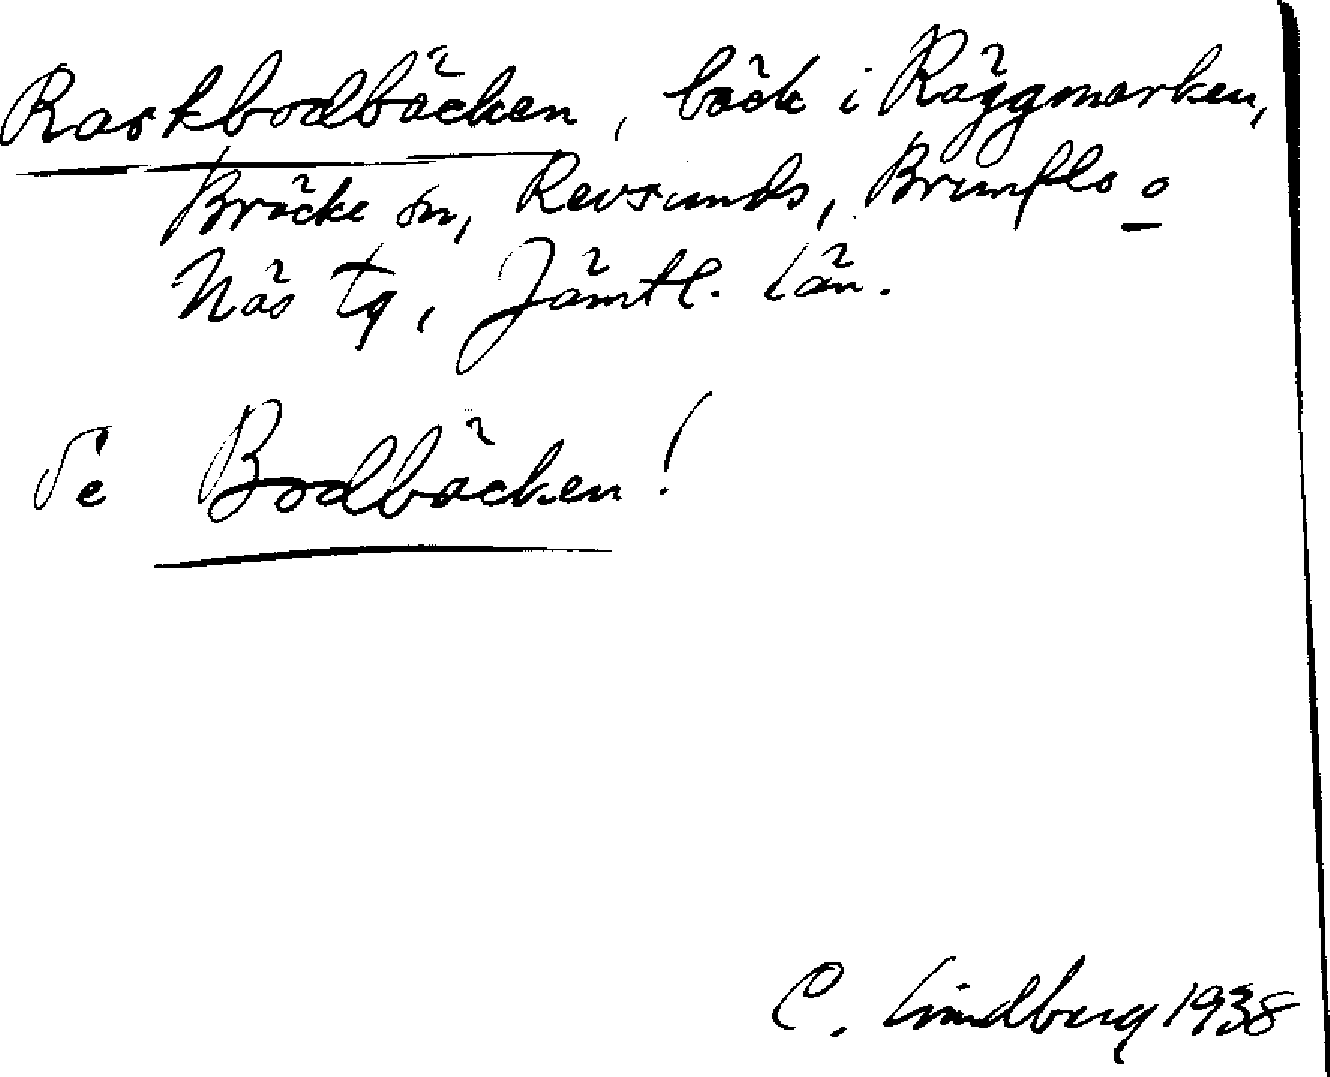 Raskbodbäcken, bäck i Räggmarken,
Bräcke sn, Revsunds, Brunflo o
Näs tg, Jämtl. län.
Se Bodbäcken!
C. Lindberg 1938